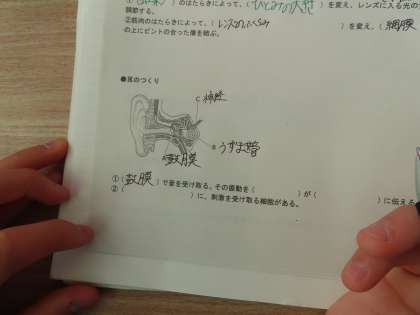 )のはたらきによって、(ひとみの大きさ)を変え、レンズに入る光の
調節する。
②筋肉のはたらきによって、(レンズのふくらみ)を変え、(網膜
の上にピントの合った像を結ぶ。
●耳のつくり
C 神経
B うずまき管
A 鼓膜
①(鼓膜)で音を受け取る。その振動を( )が( )に伝える
②( )に、刺激を受け取る細胞がある。